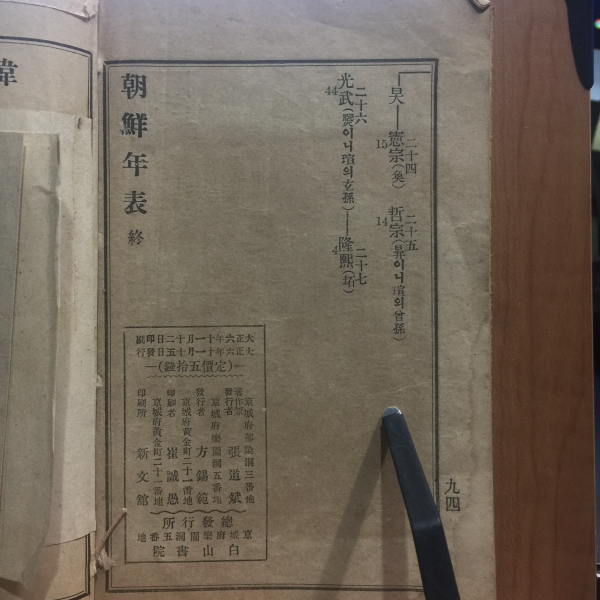 九四
昊——憲宗(奐) 哲宗(昪이니瑄의曾孫)
二十四 二十五
15 14
二十六 二十七
光武(이니瑄의玄孫)——隆熙(坧)
44 4
朝鮮年表 終
大正六年十一月十二日印刷
大正六年十一月十五日發行
(定價五拾錢)
京城府都染洞三番地
著作兼發行者 張道斌
京城府樂園洞五番地
發行者 方錫範
京城府黃金町二十一番地
印刷者 崔誠愚
京城府黃金町二十一番地
印刷所 新文館
總發行所
京城府樂園洞五番地
白山書院